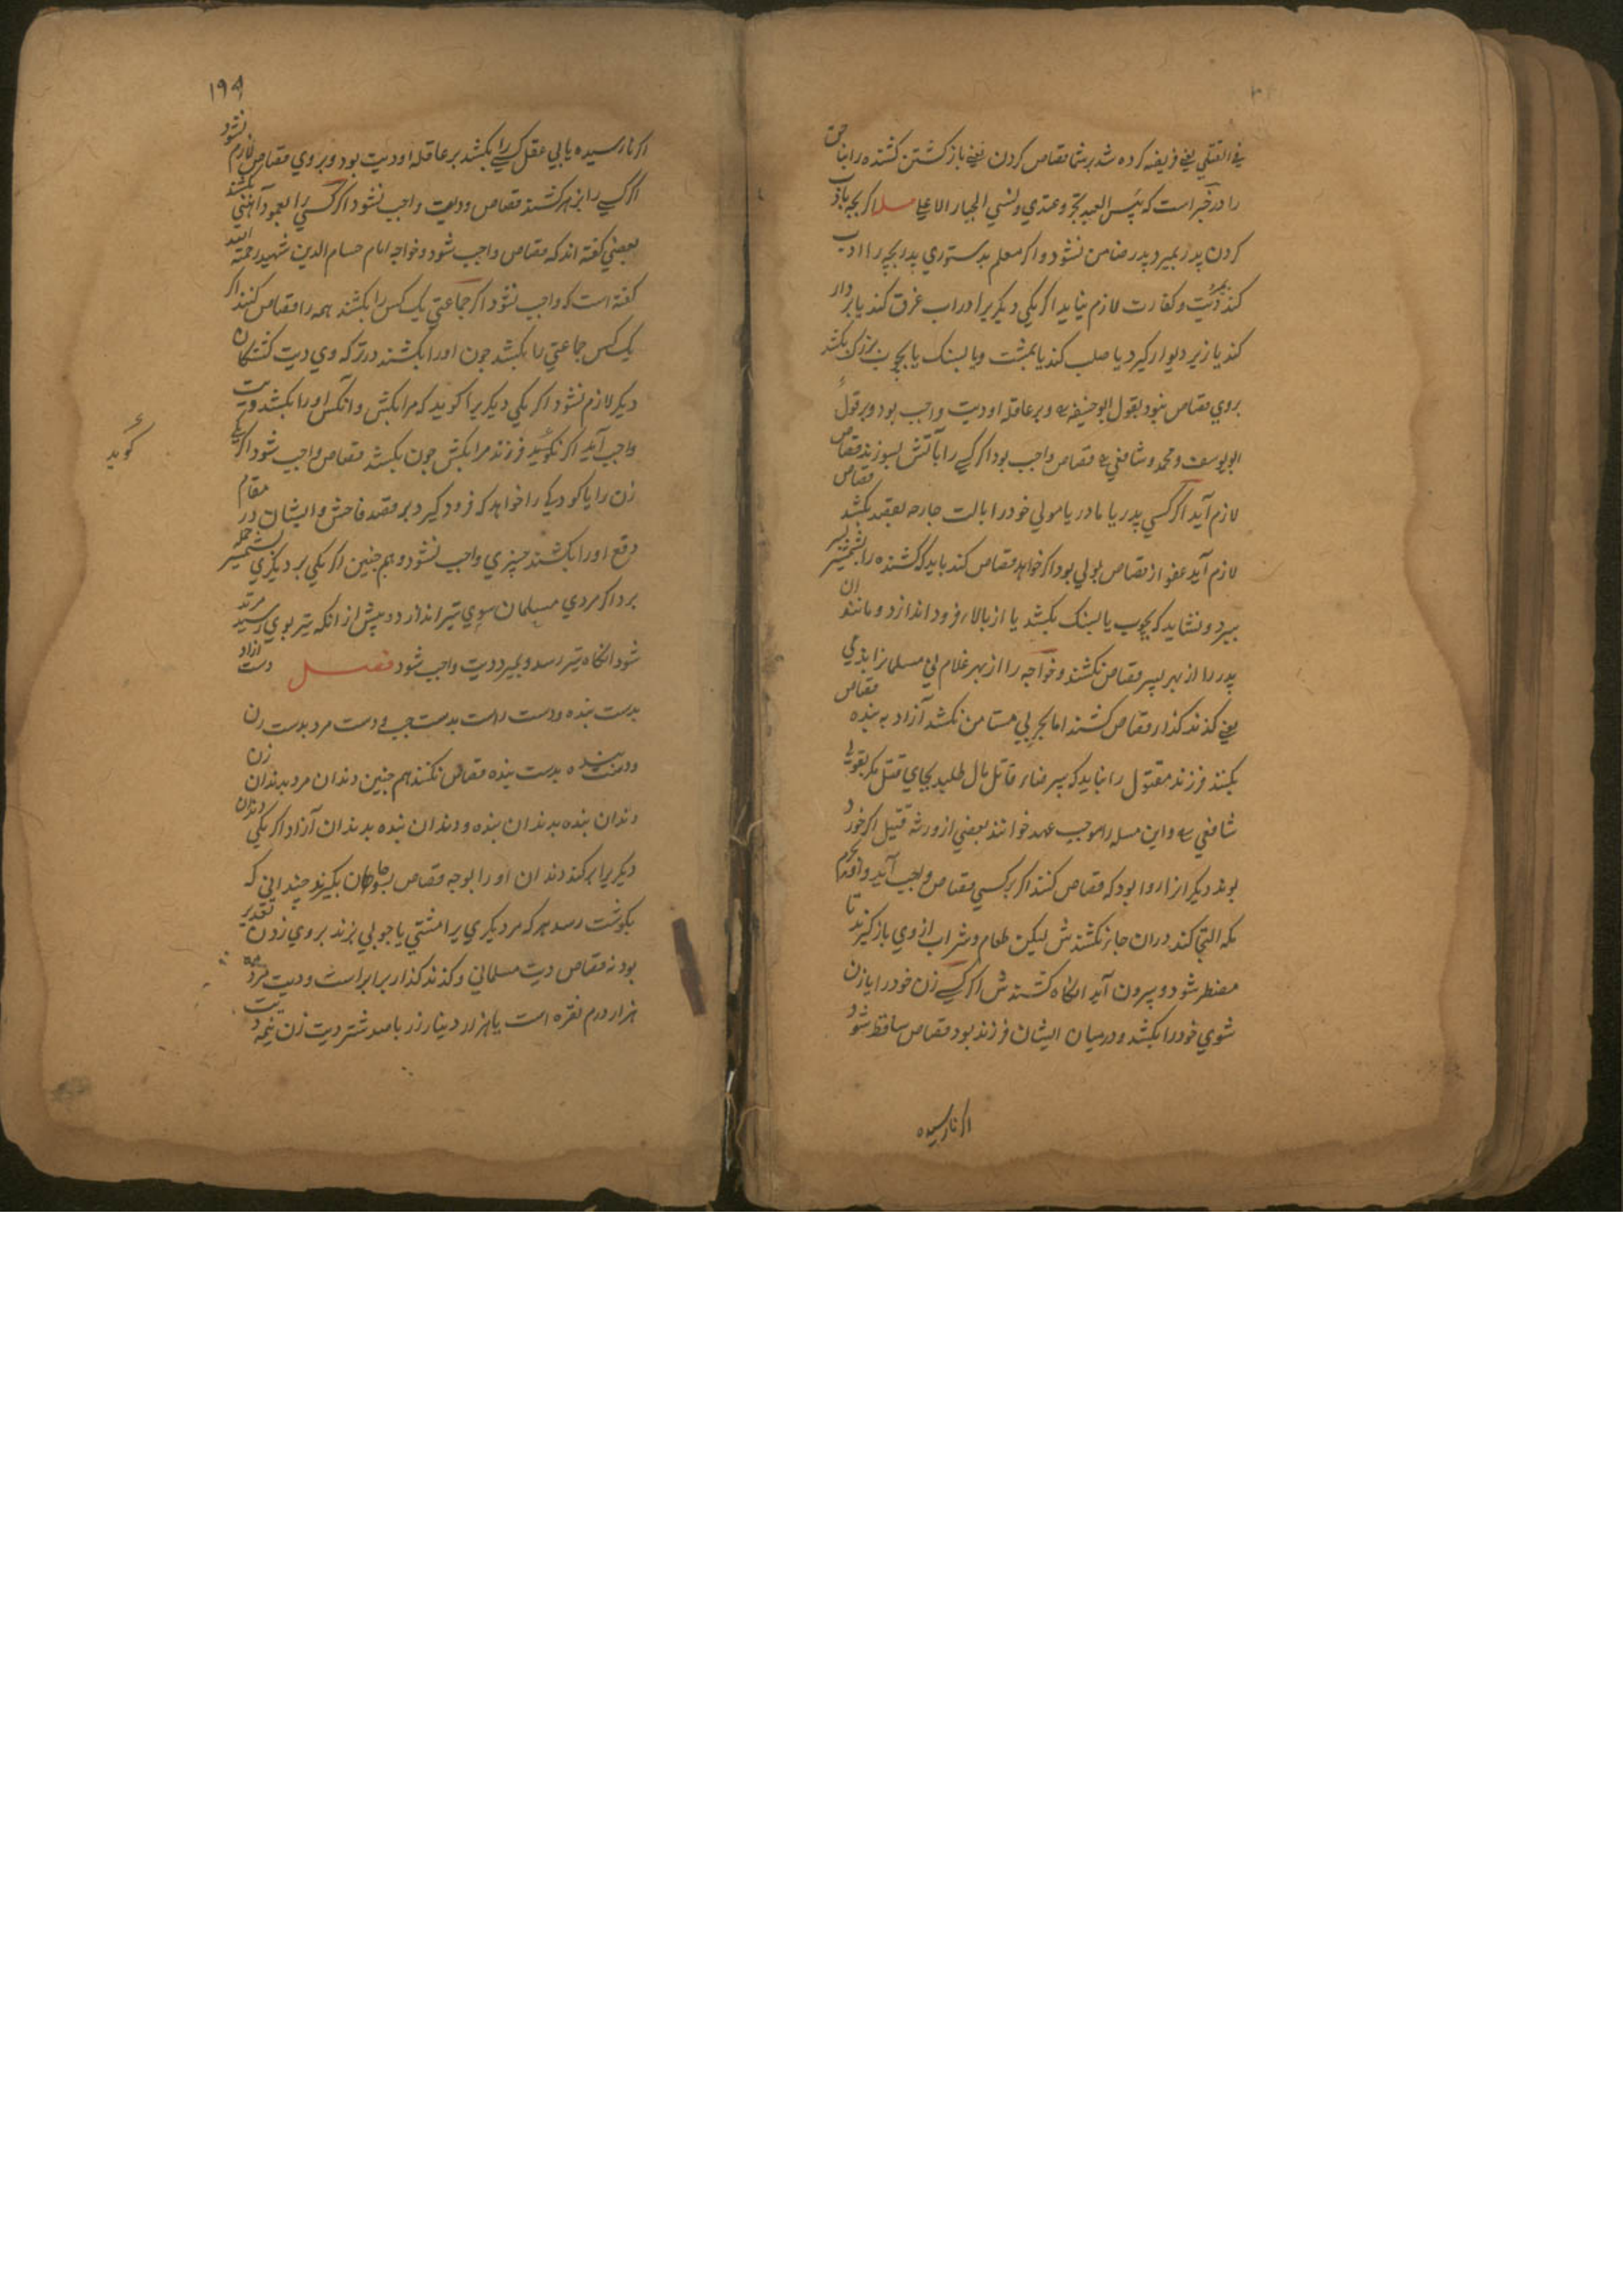 في القتلي يعني فريضه كرده شد برشما قصاص كردن يعني بازكشتن كشنده را بناحق
را در خبر است كه بئس العبد تجبر وعتدي ونسي الجبار الاعلي مسله اكر بچه باد
كردن پدر بميرد پدر ضامن نشود واكر معلم بدستوري پدر بچه را ادب
كند بميرد ديت وكفارت لازم نيايد اكر يكي ديكريرا در اب غرق كند يا بردار
كند يا زير ديوار كيرد يا صلب كند يا بمشت ويا بسنك يا بچوب بزرك بكشد
بروي قصاص نبود بقول ابو حنيفه وبرعاقله او ديت واجب بود وبرقول
ابو يوسف ومحمد وشافعي قصاص واجب بود اكر كسي را بآتش بسوزند قصاص
لازم آيد اكر كسي پدر يا مادر يا مولي خود را بالت جارحه بقصد بكشد قصاص
لازم آيد عفو از قصاص اولي بود اكر خواهد قصاص كند بايد كه كشنده را بشمشير سر
ببرد ونشايد كه بچوب يا بسنك بكشد يا از بالا فرود اندازد ومانند ان
پدر را از بهر پسر قصاص نكشند وخواجه را از بهر غلام ني مسلمانرا بذمي
يعني كذندكذار قصاص كشند اما بحربي مستامن نكشد آزاد به بنده قصاص
بكنند فرزند مقتول را نبايد كه بيرضاء قاتل مال طلبد بجاي قتل مكر بقولي
شافعي واين مسله را موجب عمد خوانند بعضي از ورثه قتيل اكر خورد
بوند ديكرانرا روا بود كه قصاص كنند اكر بركسي قصاص واجب آيد واو بحرم
مكه التجا كند دران جا نكشندش ليكن طعام وشراب از وي باز كيرند تا
مضطر شود وبيرون آيد انكاه كشندش اكر كسي زن خود را يا زن
شوي خود را بكشد ودرميان ايشان فرزند بود قصاص ساقط شود
اكر نارسيده
۱۹۹
اكر نارسيده يا بي عقل كسي را بكشد برعاقله او ديت بود وبروي قصاص لازم نشود
اكر كسي را بزهر كشند قصاص وديت واجب نشود اكر كسي را بعمود آهني بكشند
بعضي كفته اند كه قصاص واجب شود وخواجه امام حسام الدين شهيد رحمة الله
كفته است كه واجب نشود اكر جماعتي يك كس را بكشند همه را قصاص كنند اكر
يك كس جماعتي را بكشد چون اورا بكشند در تركه وي ديت كشتكان
ديكر لازم نشود اكر يكي ديكريرا كويد كه مرا بكش وانكس اورا بكشد ديت
واجب آيد اكر بكويد فرزند مرا بكش چون بكشد قصاص واجب شود اكر يكي
زن را يا كودكي را خواهد كه فرود كيرد بر قصد فاحش وايشان در مقام
دفع اورا بكشند چيزي واجب نشود وهم چنين اكر يكي بر ديكري بشمشير حمله
برد اكر مردي مسلمان سوي تير اندازد وپيش از انكه تير بوي رسيد مرتد
شود انكاه تير رسد وبميرد ديت واجب شود فصل دست ازاد
بدست بنده ودست راست بدست چپ ودست مرد بدست زن
ودست بنده بدست بنده قصاص نكنند هم چنين دندان مرد بدندان زن
دندان بنده بدندان بنده ودندان بنده بدندان آزاد اكر يكي دندان
ديكريرا بركند دندان اورا بوجه قصاص بسوهان بكيرند چنداني كه
بكوشت رسد هركه مر ديكري را مشتي يا چوبي بزند بروي زدن تقدير
بود نه قصاص ديت مسلماني وكذندكذار برابر است وديت مرد ده
هزار درم نقره است يا هزار دينار زر يا صد شتر ديت زن نيمه ديت
كويد